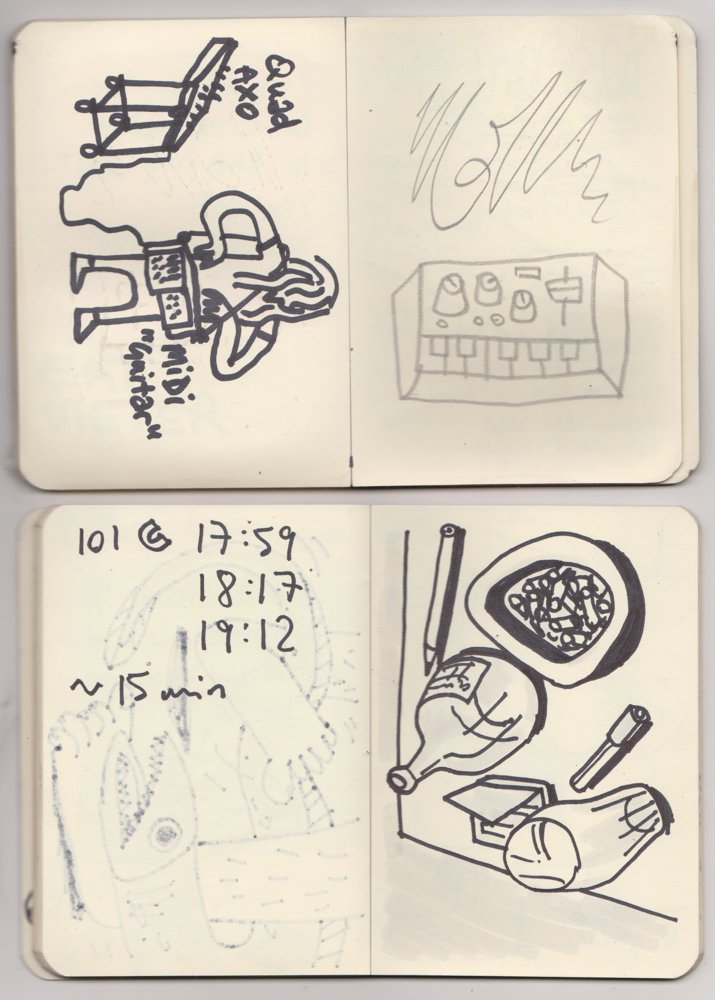 Quad
AXO
MiDi
"Guitar"
101 @ 17:59
18:17
19:12
~ 15 min